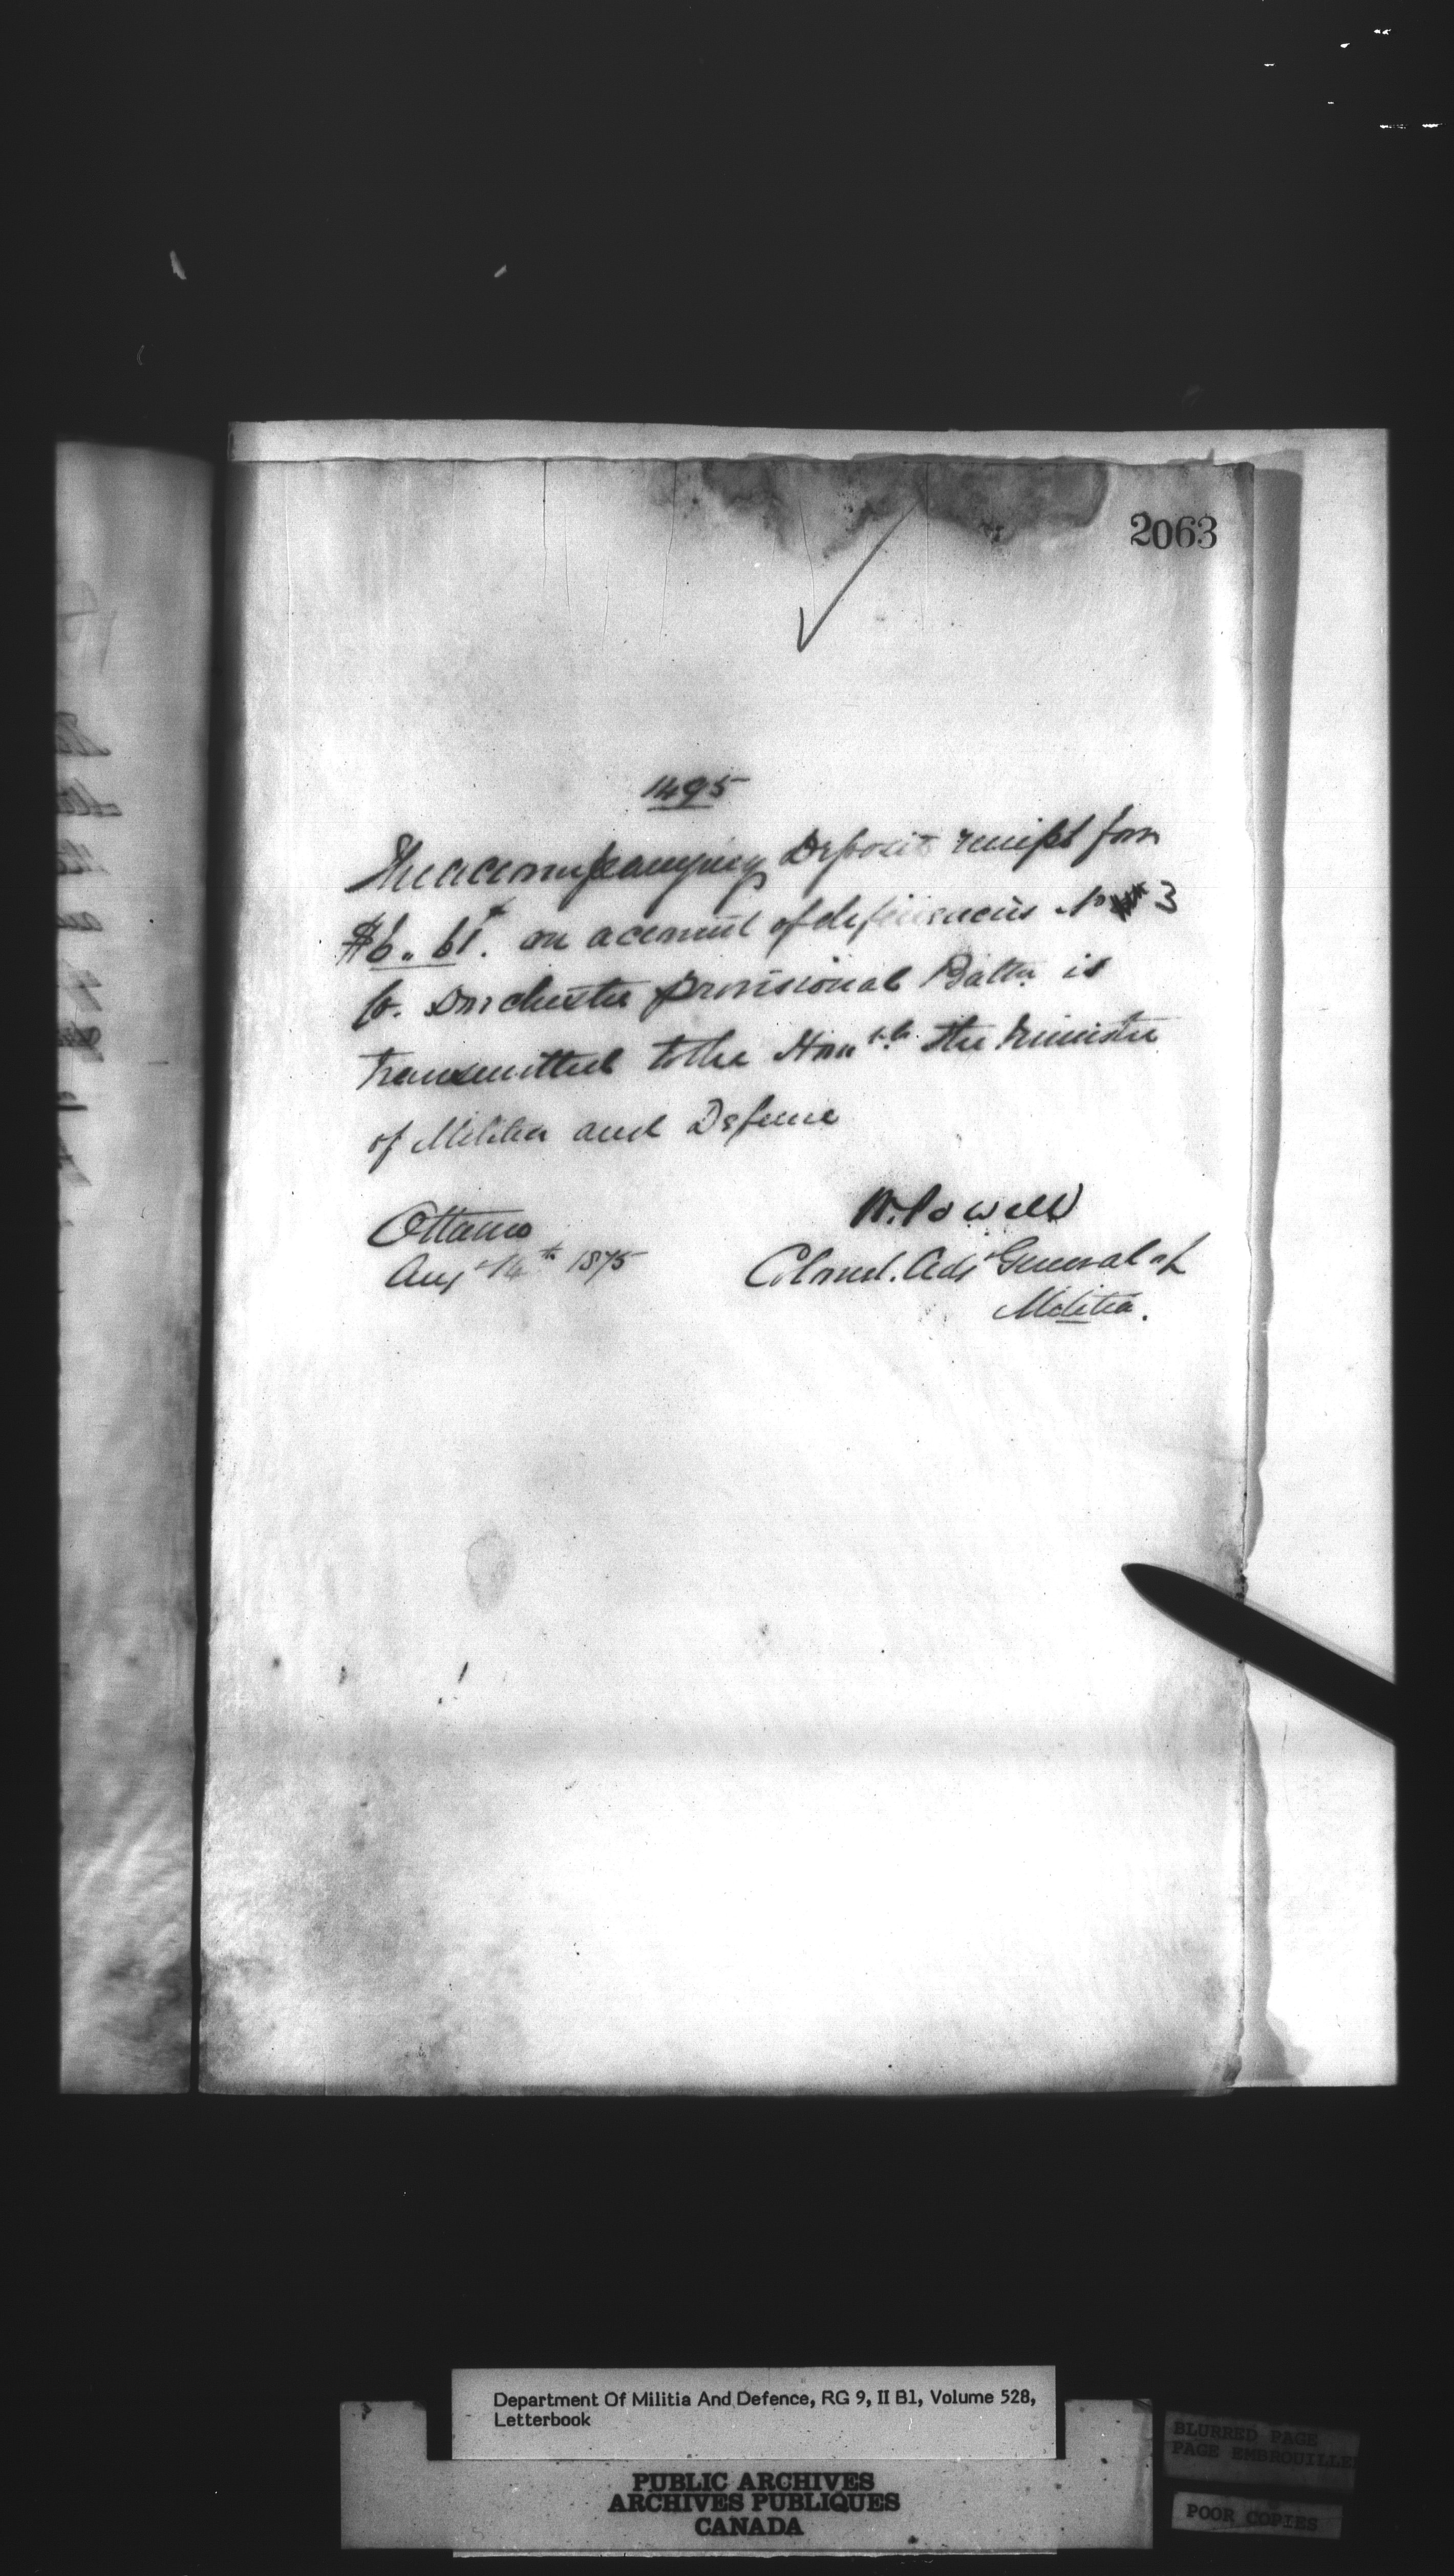 2063
1495
The accompanying Deposit receipt for
$6.61. on account of deficiencies No 3
Co. Dorchester Provisional Battn is
transmitted to the Honble the Minister
of Militia and Defence
Ottawa
Augt 14th 1875
W. Powell
Colonel. Adjt General of
Militia.
Department Of Militia And Defence, RG 9, II B1, Volume 528,
Letterbook
PUBLIC ARCHIVES
ARCHIVES PUBLIQUES
CANADA
BLURRED PAGE
PAGE EMBROUILLE
POOR COPIES